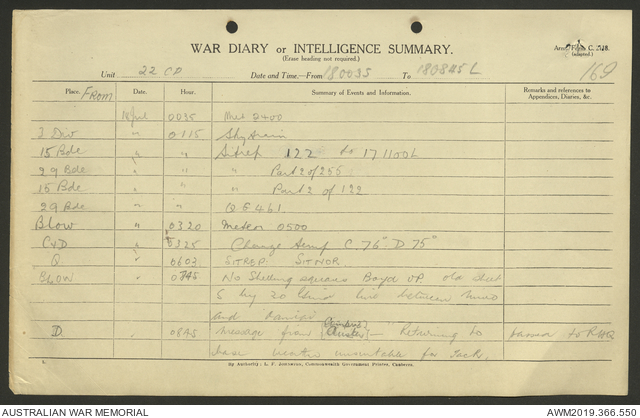 WAR DIARY or INTELLIGENCE SUMMARY.
(Erase heading not required.)
Army Form C. 2118.
(adapted.)
169
Unit 22 CD Date and Time.—From 180035 To 180845 L
Place. FROM Date. Hour. Summary of Events and Information. Remarks and references to Appendices, Diaries, &c.
18 Jul 0035 Met 2400
3 Div " 0115
15 Bde " " Sitrep 122 to 171100L
29 Bde " " " Part 2 of 255
15 Bde " " " Part 2 of 122
29 Bde " Q 5461
Blow " 0320 Meteor 0500
C & D " 0325 Change temp C. 76° D 75°
Q " 0603 SITREP. SITMOR
BLOW " 0745 No Shelling square Boyd VP old sheet
5 by 20 Grid line between
and
D " 0845 Message from — Returning to
base weather unsuitable for task.
By Authority: L. F. Johnston, Commonwealth Government Printer, Canberra.
AUSTRALIAN WAR MEMORIAL
AWM2019.366.550